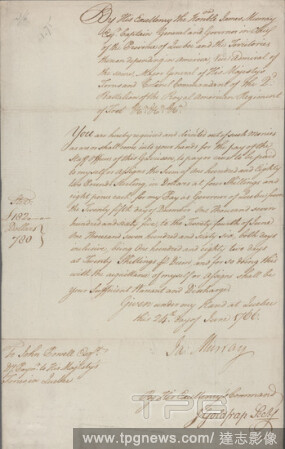 By His Excellency the Hon:ble James Murray
Esq:r Captain General and Governor in Chief
of the Province of Quebec and the Territories
thereon depending in America, Vice Admiral of
the same, Major General of His Majesty's
Forces and Colonel Commandant of the 2:d
Battalion of the Royal American Regiment
of Foot &c:a &c:a &c:a
You are hereby required and directed out of such Monies
as are or shall come into your hands for the pay of the
Staff Officers of this Garrison, to pay or cause to be paid
to myself or Assigns the Sum of One hundred and Eighty
two Pounds Sterling, in Dollars at four Shillings and
Eight pence each for my Pay as Governor of Quebec, from
the Twenty fifth day of December One Thousand Seven
hundred and sixty five, to the Twenty fourth of June
One Thousand Seven hundred and Sixty Six, both days
inclusive, being One hundred and Eighty two days
at Twenty Shillings per Diem, and for so doing this
with the acquittance of myself or Assigns shall be
your Sufficient Warrant and Discharge
Given under my Hand at Quebec
this 24:th day of June 1766.
£182
Dollars
780
Ja: Murray
To John Powell Esq:r
D:y Paymr to His Majesty's
Forces in Quebec
By His Excellency's Command
J Goldfrap Secy
TPG
www.tpgnews.com / 達志影像